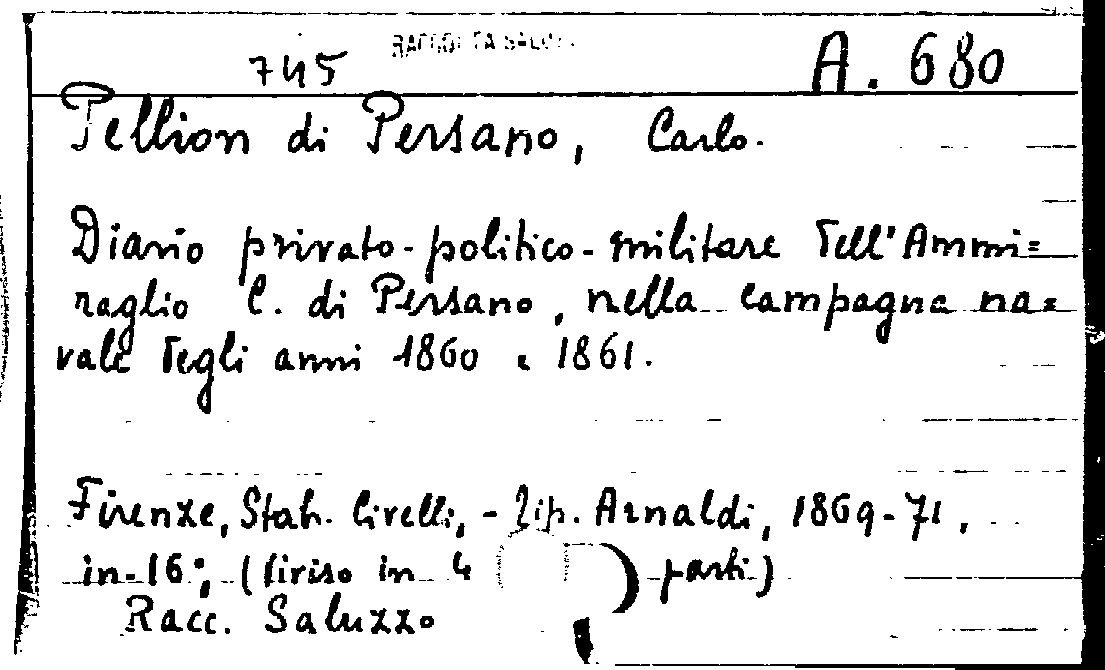 RACCOLTA SALUZZO
745 A. 680
Pellion di Persano, Carlo.
Diario privato-politico-militare dell'Ammi=
raglio C. di Persano, nella campagna na=
vale degli anni 1860 e 1861.
Firenze, Stab. Civelli, - Tip. Arnaldi, 1869-71,
in-16°, (diviso in 4 parti)
Racc. Saluzzo